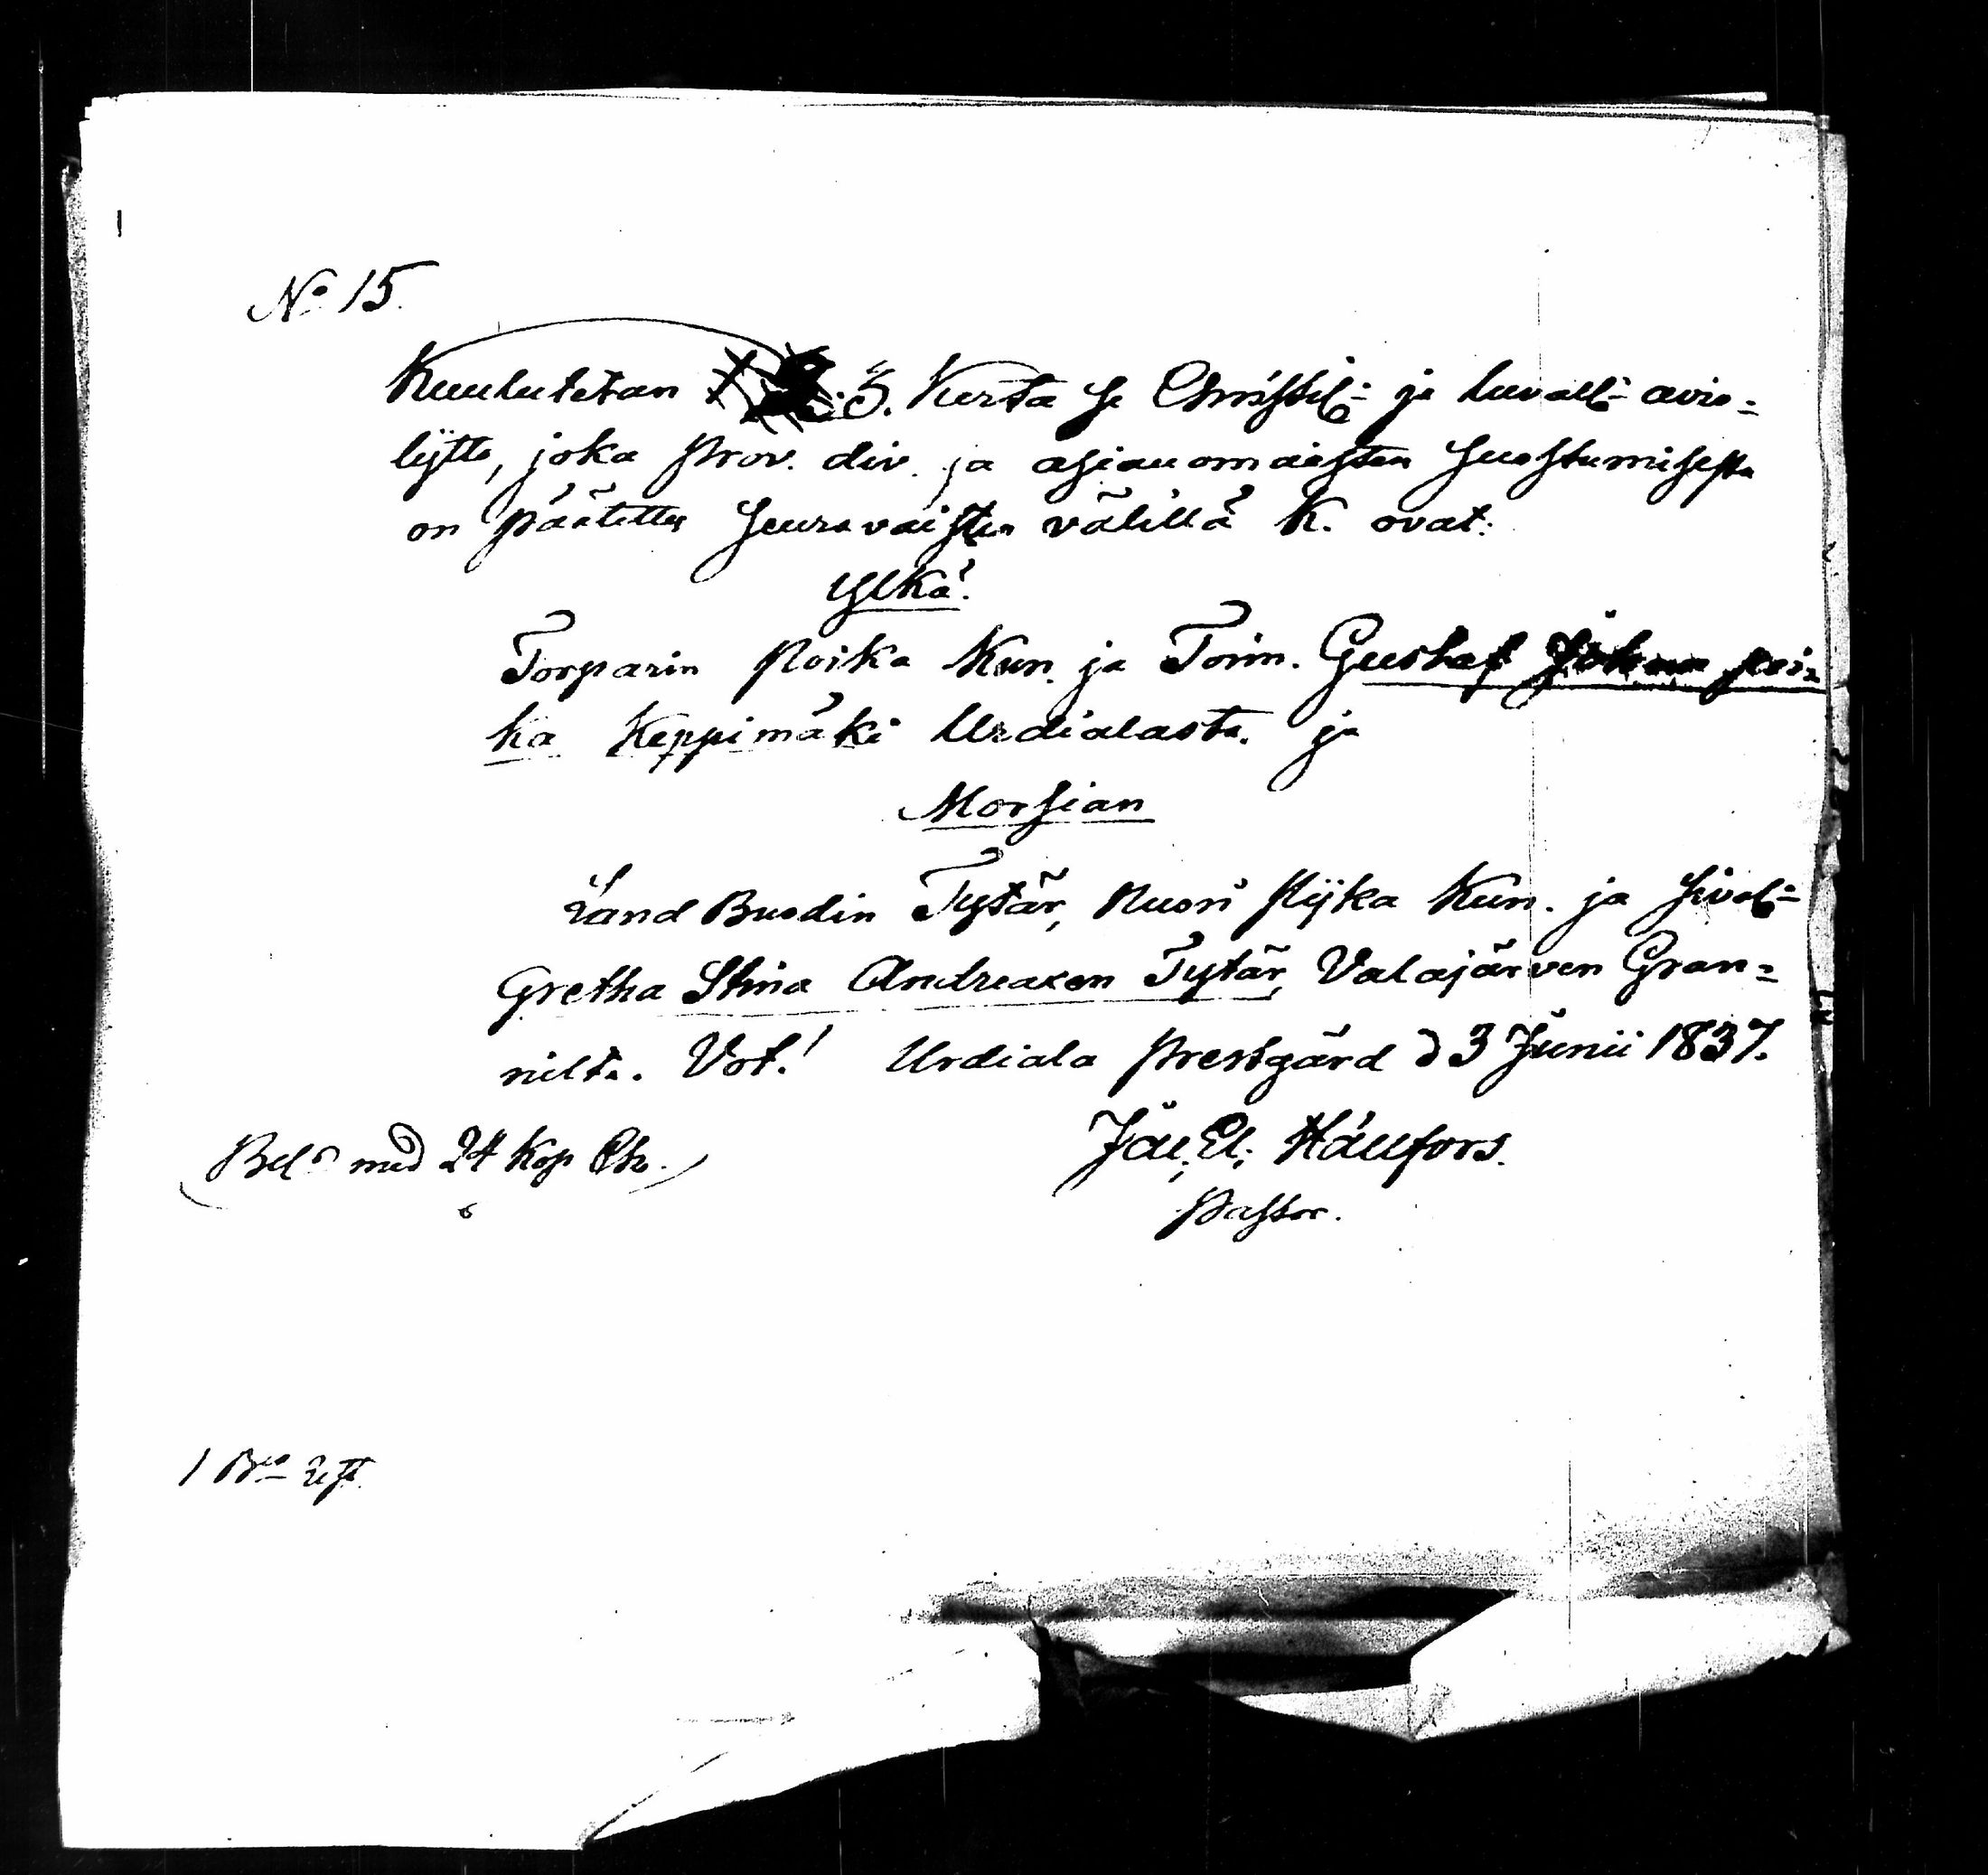 No 15.
Kuulutetan 3. Kerta se Christil= ja luvall= avio=
lijtto, joka Prov. div. ja asianomaisten suostumisesta
on päätetty seuravaisten välillä K. ovat.
Ylkä.
Torparin Poika Kun. ja Toim. Gustaf Johan poi=
ka Keppimäki Urdialasta. ja
Morsian
Land Buodin Tytär, Nuori Pijka Kun. ja sivel=
Gretha Stina Andreaxen Tytär, Valajärven Gran=
nilta. Vot! Urdiala Prestgård d 3 Junii 1837.
Hällfors.
Pastor.
med 24 Kop
1